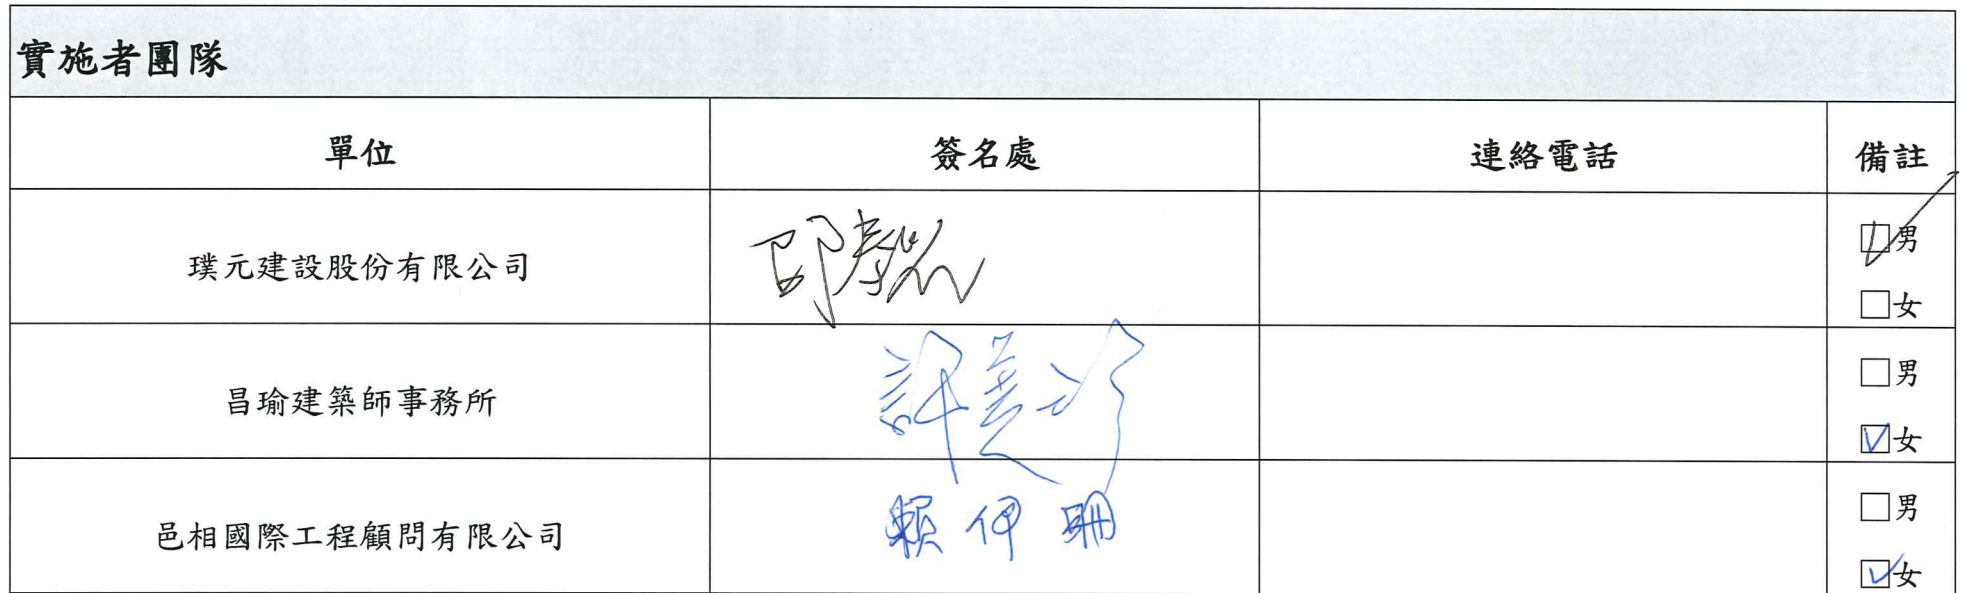 實施者團隊
單位 簽名處 連絡電話 備註
璞元建設股份有限公司 ☑男
□女
昌瑜建築師事務所 許 □男
☑女
邑相國際工程顧問有限公司 賴伊珊 □男
☑女